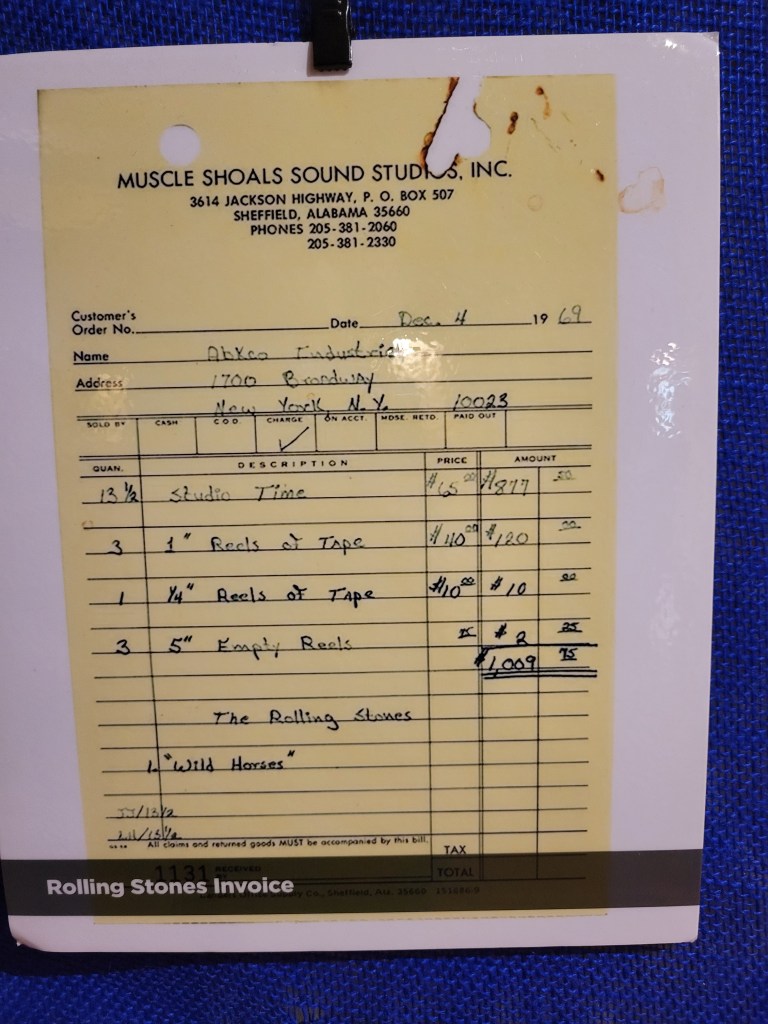 MUSCLE SHOALS SOUND STUDIOS, INC.
3614 JACKSON HIGHWAY, P. O. BOX 507
SHEFFIELD, ALABAMA 35660
PHONES 205-381-2060
205-381-2330
Customer's
Order No. Date Dec. 4 19 69
Name Abkco Industries
Address 1700 Broadway
New York, N.Y. 10023
SOLD BY CASH C.O.D. CHARGE ✓ ON ACCT. MDSE. RETD. PAID OUT
QUAN. DESCRIPTION PRICE AMOUNT
13 ½ Studio Time $65 00 $877 50
3 1" Reels of Tape $40 00 $120 00
1 ¼" Reels of Tape $10 00 $10 00
3 5" Empty Reels 75 $2 25
$1,009 75
The Rolling Stones
1. "Wild Horses"
JJ/13½
LH/13½
All claims and returned goods MUST be accompanied by this bill.
TAX
1131 RECEIVED TOTAL
Rolling Stones Invoice
Supply Co., Sheffield, Ala. 35660